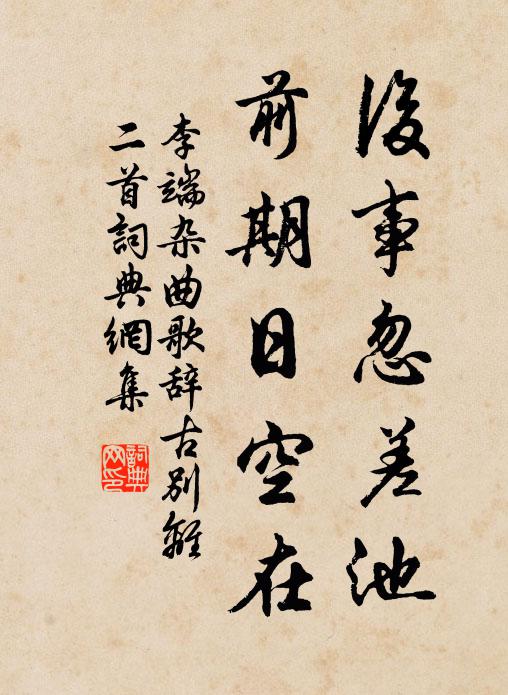 後事忽差池
前期日空在
李端杂曲歌辞古別離
二首詞典網集
詞典网印